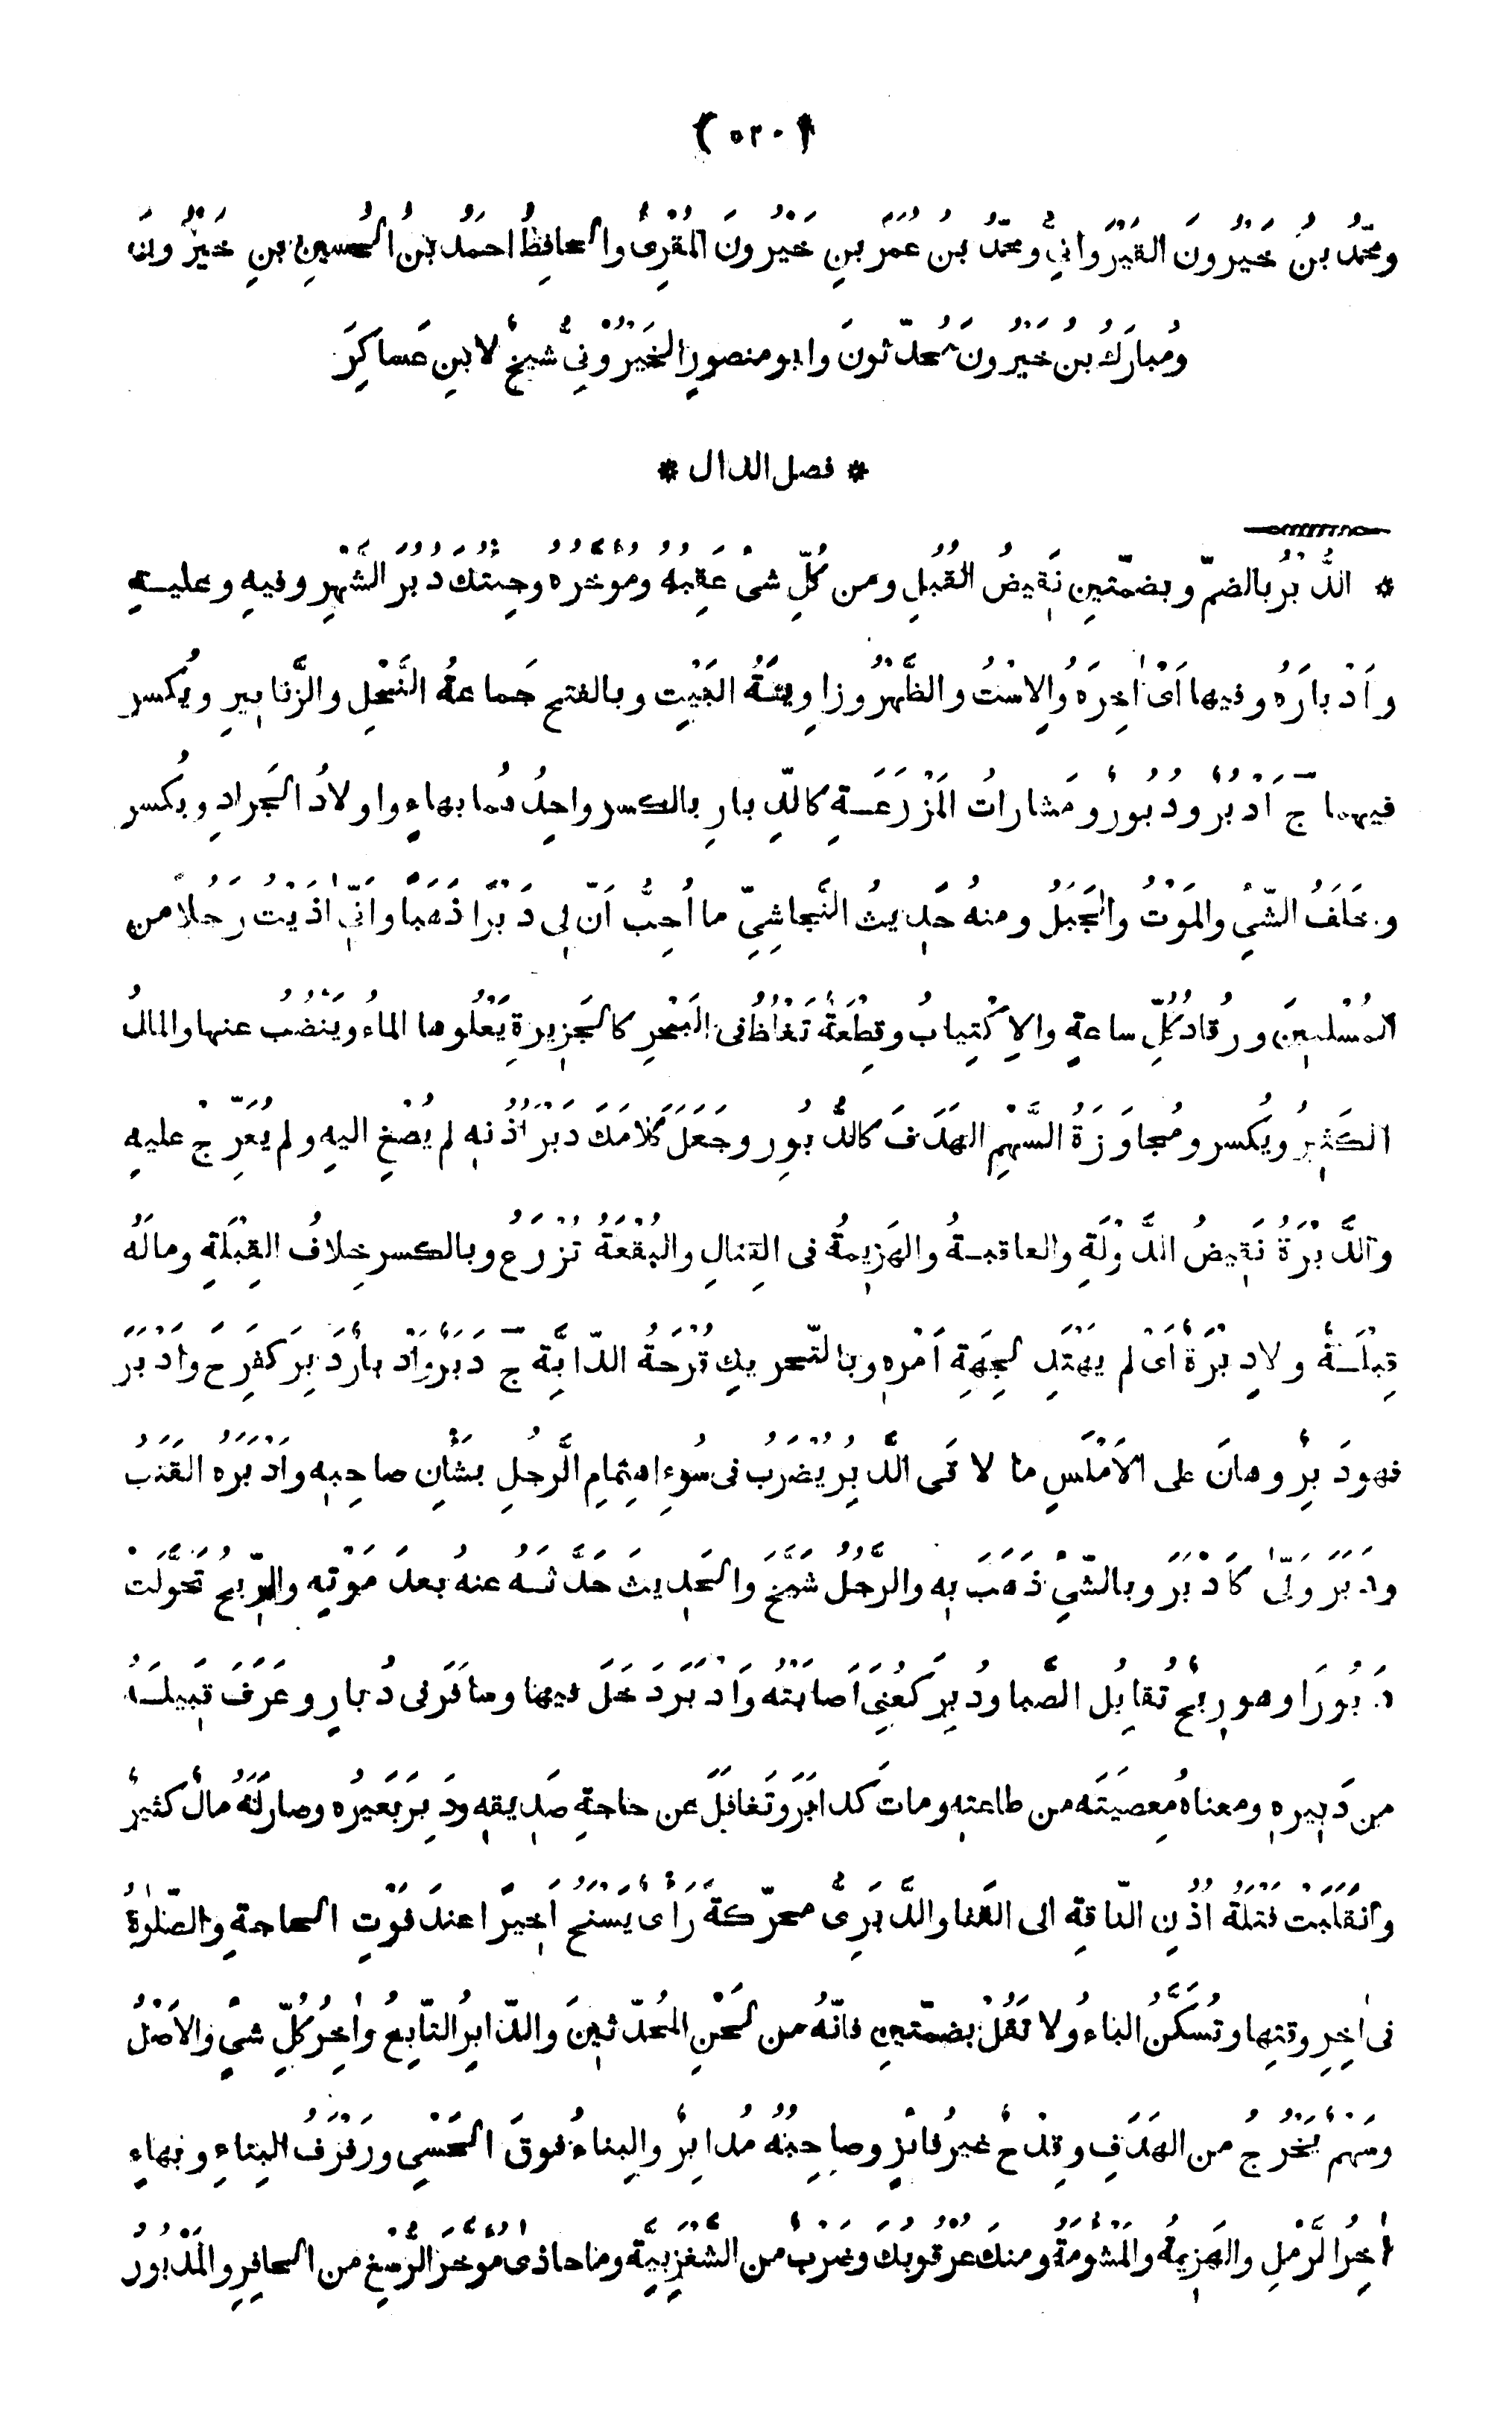 (٥٢٠)
ومحمّدُ بنُ خَيْرُونَ القَيْرَوانيُّ ومحمّدُ بنُ عُمَرَ بنِ خَيْرُونَ المُقْرِئُ والحافِظُ احمَدُ بنُ الحُسينِ بنِ خَيْرُونَ
ومُبارَكُ بنُ خَيْرُونَ مُحدّثونَ وابو منصورٍ الخَيْرُونِيُّ شيخٌ لابنِ عَساكِرَ
* فصل الدال *
* الدُّبْرُ بالضمّ وبضمّتينِ نَقِيضُ القُبُلِ ومن كُلِّ شىْءٍ عَقِبُهُ ومُوَخَّرُهُ وجِئتُكَ دُبُرَ الشَّهْرِ وفيهِ وعليهِ
واَدْبارَهُ وفيها اَىْ اٰخِرَهُ والِاسْتُ والظَّهْرُ وزاوِيَةُ البَيْتِ وبالفتحِ جَماعةُ النَّحْلِ والزَّنابِيرِ ويُكسر
فيهما ج اَدْبُرٌ ودُبُورٌ ومَشاراتُ المَزْرَعَةِ كالدِّبارِ بالكسر واحِدُهُما بهاءٍ واولادُ الجَرادِ ويُكسر
وخَلَفُ الشّيْءِ والمَوْتُ والجَبَلُ ومنهُ حَدِيثُ النَّجاشِيِّ ما اُحِبُّ اَنّ لِى دَبْرًا ذَهَبًا واَنِّى اٰذَيْتُ رَجُلًا من
المُسْلمِينَ ورُقادُ كُلِّ ساعةٍ والِاكْتِيابُ وقِطْعَةٌ تَغْلُظُ فى البَحْرِ كالجَزِيرةِ يَعْلُوها الماءُ ويَنْضُبُ عنها والمالُ
الكَثِيرُ ويُكسر ومُجاوَزَةُ السَّهْمِ الهَدَفَ كالدُّبُورِ وجَعَلَ كَلامَكَ دَبْرَ اُذُنِهِ لم يُصْغِ اليهِ ولم يُعَرِّجْ عليهِ
والدَّبْرَةُ نَقِيضُ الدَّوْلَةِ والعاقبةُ والهَزِيمةُ فى القِتالِ والبُقْعَةُ تُزْرَعُ وبالكسرِ خِلافُ القِبْلَةِ ومالَهُ
قِبْلَةٌ ولا دِبْرَةٌ اَىْ لم يَهْتَدِ لِجِهَةِ اَمْرِهِ وبالتّحرِيكِ قُرْحَةُ الدّابَّةِ ج دَبَرٌ واَدْبارٌ دَبِرَ كفَرِحَ واَدْبَرَ
فهو دَبِرٌ وهانَ على الاَمْلَسِ ما لاقَى الدَّبِرُ يُضْرَبُ فى سُوءِ اهتِمامِ الرَّجُلِ بشَأْنِ صاحِبِهِ واَدْبَرَهُ القَتَبُ
ودَبَرَ وَلّىٰ كاَدْبَرَ وبالشّيْءِ ذَهَبَ بِهِ والرَّجُلُ شَيَّخَ والحَدِيثَ حَدَّثَهُ عنهُ بعدَ مَوْتِهِ والرّيحُ تَحَوَّلَتْ
دَبُورًا وهو رِيحٌ تُقابِلُ الصَّبا ودُبِرَ كعُنِىَ اَصابَتْهُ واَدْبَرَ دَخَلَ فيها وسافَرَ فى دُبارٍ وعَرَفَ قَبِيلَهُ
من دَبِيرِهِ ومعناهُ مَعصِيَتَه من طاعتِهِ وماتَ كدابَرَ وتَغافَلَ عن حاجةِ صَدِيقِهِ ودَبِرَ بَعيرُه وصارَ لَهُ مالٌ كثيرٌ
وانْقَلَبَتْ فَتْلَةُ اُذُنِ النّاقةِ الى القَفا والدَّبَرِىُّ محرّكةً رَأْىٌ يَسْنَحُ اَخِيرًا عندَ فَوْتِ الحاجةِ والصّلٰوةُ
فى اٰخِرِ وقتِها وتُسَكَّنُ الباءُ ولا تَقُلْ بضمّتينِ فانّهُ من لَحْنِ المُحدّثِينَ والدّابِرُ التّابِعُ واٰخِرُ كُلِّ شيْءٍ والاَصْلُ
وسَهْمٌ يَخْرُجُ من الهَدَفِ وقِدْحٌ غيرُ فائزٍ وصاحِبُهُ مُدابِرٌ والبِناءُ فوقَ الحَسْيِ ورَفْرَفُ البِناءِ وبهاءٍ
اٰخِرُ الرَّمْلِ والهَزِيمةُ والمَشْؤُمَةُ ومنكَ عُرْقُوبُكَ وضَرْبٌ من الشَّغْزَبِيَّةِ وما حاذَى مُؤَخَّرَ الرُّسْغِ من الحافِرِ والمَدْبُورُ